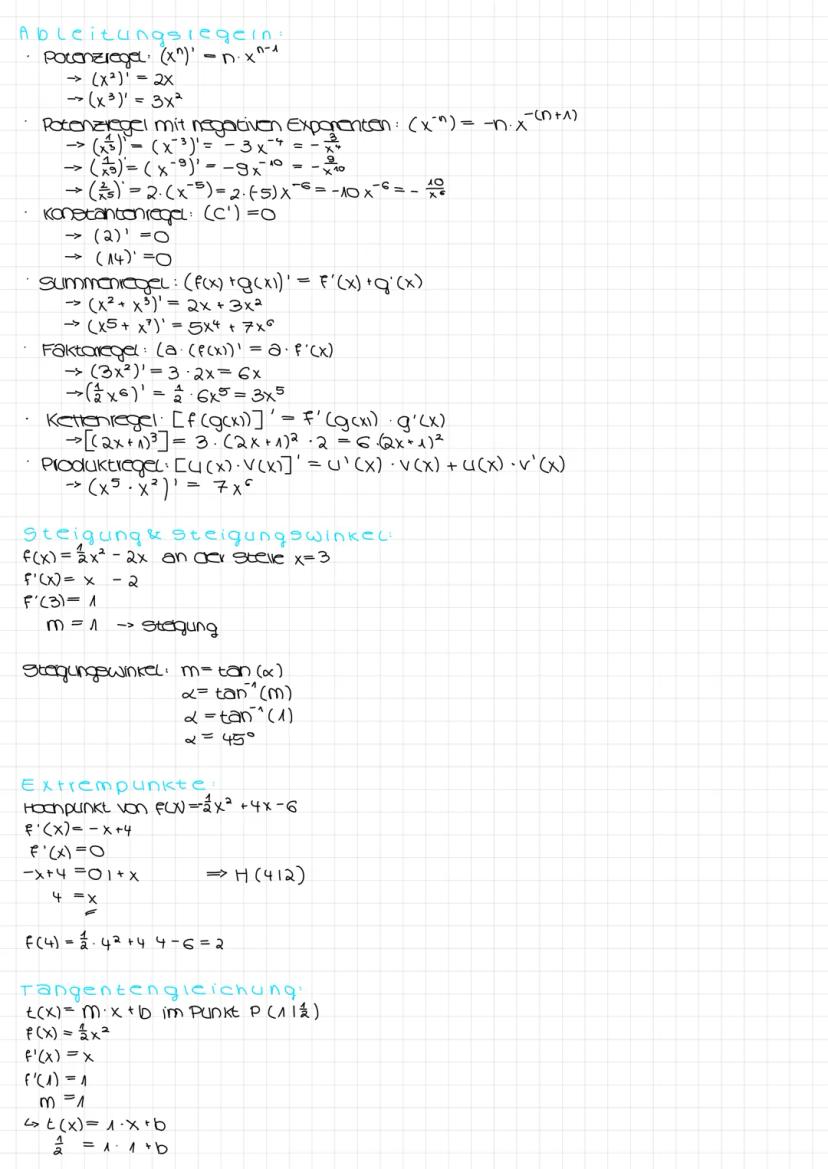 Ableitungsregeln:
· Potenzregel: (xⁿ)' = n · xⁿ⁻¹
→ (x²)' = 2x
→ (x³)' = 3x²
· Potenzregel mit negativen Exponenten: (x⁻ⁿ) = -n · x⁻⁽ⁿ⁺¹⁾
→ (1/x³)' = (x⁻³)' = -3x⁻⁴ = -3/x⁴
→ (1/x⁹)' = (x⁻⁹)' = -9x⁻¹⁰ = -9/x¹⁰
→ (2/x⁵)' = 2·(x⁻⁵) = 2·(-5)x⁻⁶ = -10x⁻⁶ = -10/x⁶
· Konstantenregel: (C') = 0
→ (2)' = 0
→ (14)' = 0
· Summenregel: (f(x)+g(x))' = f'(x)+g'(x)
→ (x² + x³)' = 2x + 3x²
→ (x⁵ + x⁷)' = 5x⁴ + 7x⁶
· Faktorregel: (a·(f(x))' = a·f'(x)
→ (3x²)' = 3·2x = 6x
→ (1/2 x⁶)' = 1/2 · 6x⁵ = 3x⁵
· Kettenregel: [f(g(x))]' = f'(g(x)) · g'(x)
→ [(2x+1)³] = 3·(2x+1)²·2 = 6·(2x+1)²
· Produktregel: [u(x)·v(x)]' = u'(x)·v(x) + u(x)·v'(x)
→ (x⁵ · x²)' = 7x⁶
Steigung & Steigungswinkel:
f(x) = 1/2x² - 2x an der Stelle x=3
f'(x) = x - 2
f'(3) = 1
m = 1 → Steigung
Steigungswinkel: m = tan(α)
α = tan⁻¹(m)
α = tan⁻¹(1)
α = 45°
Extrempunkte:
Hochpunkt von f(x) = -1/2x² + 4x - 6
f'(x) = -x+4
f'(x) = 0
-x+4 = 0 | +x ⇒ H(4|2)
4 = x
f(4) = 1/2 · 4² + 4 4 - 6 = 2
Tangentengleichung:
t(x) = m·x+b im Punkt P(1|1/2)
f(x) = 1/2x²
f'(x) = x
f'(1) = 1
m = 1
↳ t(x) = 1·x+b
1/2 = 1·1+b